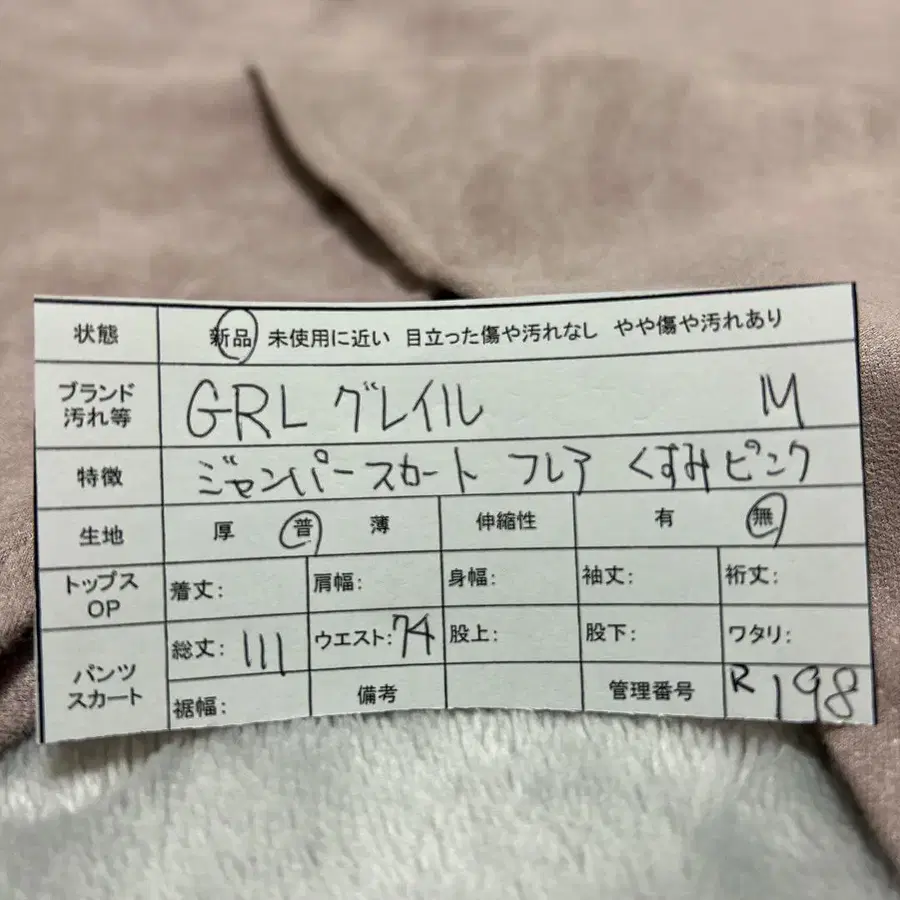 状態 新品 未使用に近い 目立った傷や汚れなし やや傷や汚れあり
ブランド 汚れ等 GRL グレイル M
特徴 ジャンパースカート フレア くすみピンク
生地 厚 普 薄 伸縮性 有 無
トップス OP 着丈: 肩幅: 身幅: 袖丈: 裄丈:
パンツ スカート 総丈: 111 ウエスト: 74 股上: 股下: ワタリ:
裾幅: 備考 管理番号 R198